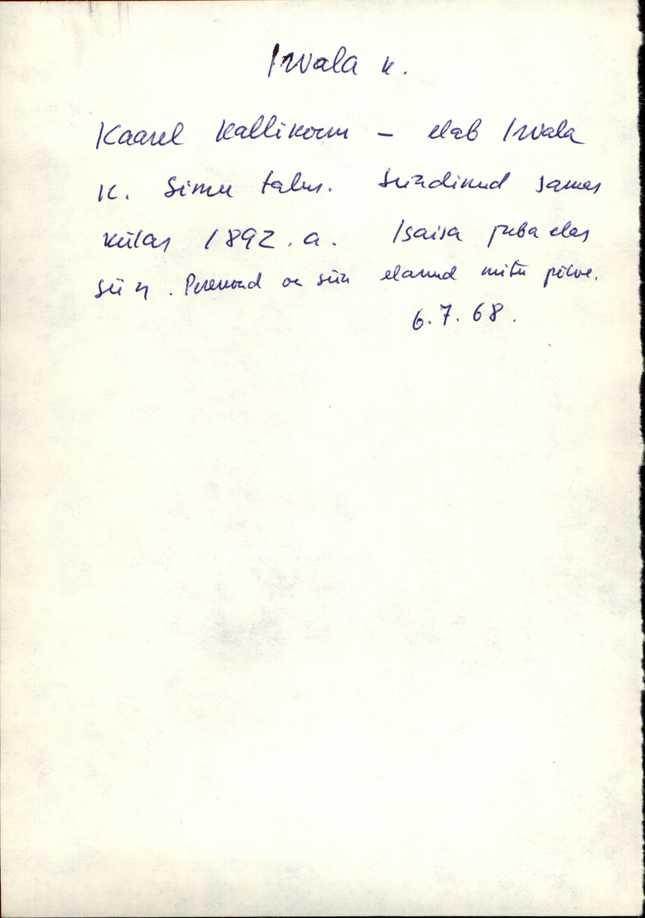 Irvala k.
Kaarel Kallikorm – elab Irvala
k. Simu talus. Sündinud samas
külas 1892. a. Isaisa juba elas
siin. Perekond on siin elanud mitu põlve.
6.7.68.